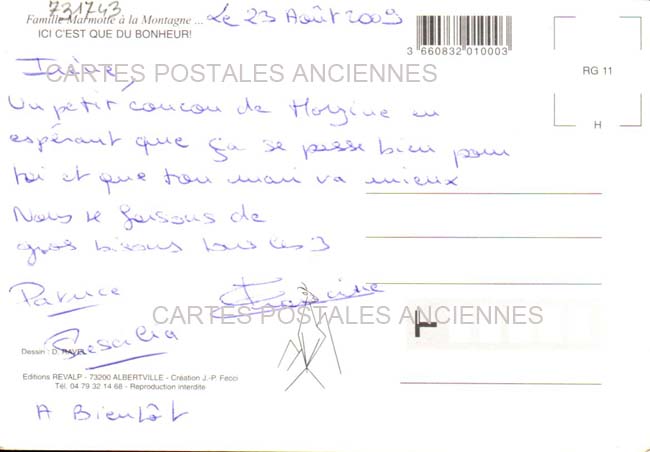 731743
Famille Marmotte à la Montagne ... Le 23 Août 2009
ICI C'EST QUE DU BONHEUR!
3 660832 010003
RG 11
H
Irène,
CARTES POSTALES ANCIENNES
Un petit coucou de Morzine en
espérant que ça se passe bien pour
toi et que ton mari va mieux
Nous te faisons de
gros bisous tous les 3
Patrice
CARTES POSTALES ANCIENNES
Dessin : D.
Editions REVALP - 73200 ALBERTVILLE - Création J.-P. Fecci
Tél. 04 79 32 14 68 - Reproduction interdite
A Bientôt